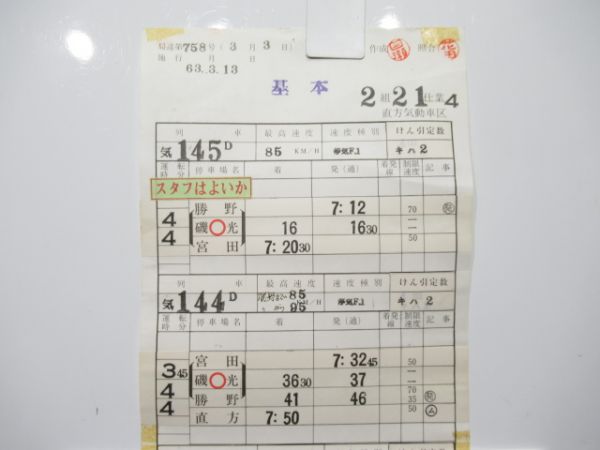 局達第758号(3月3日)
施行 月 日
63.3.13
作成 照合
基本
2組21仕業4
直方気動車区
列車 最高速度 速度種別 けん引定数
気145D 85KM/H 停気F.1 キハ2
運転時分 停車場名 着 発(通) 着発線 制限速度 記事
スタフはよいか
勝野 7:12 70
4 磯○光 16 1630 — —
4 宮田 7:2030 50
列車 最高速度 速度種別 けん引定数
気144D 85 95 KM/H 停気F.1 キハ2
運転時分 停車場名 着 発(通) 着発線 制限速度 記事
宮田 7:3245 50
345 磯○光 3630 37 — —
4 勝野 41 46 70 35
4 直方 7:50 50